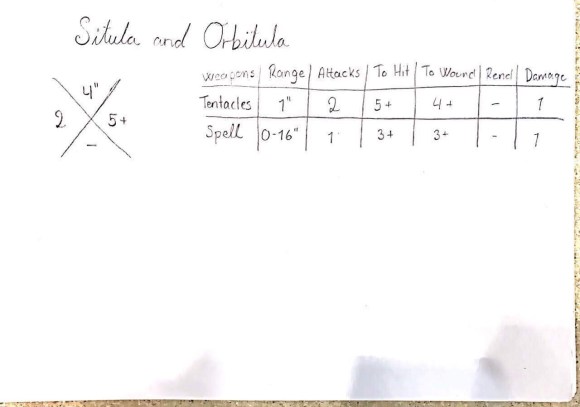 Situla and Orbitula
weapons Range Attacks To Hit To Wound Rend Damage
4"
Tentacles 1" 2 5+ 4+ - 1
2 5+
Spell 0-16" 1 3+ 3+ - 1
-